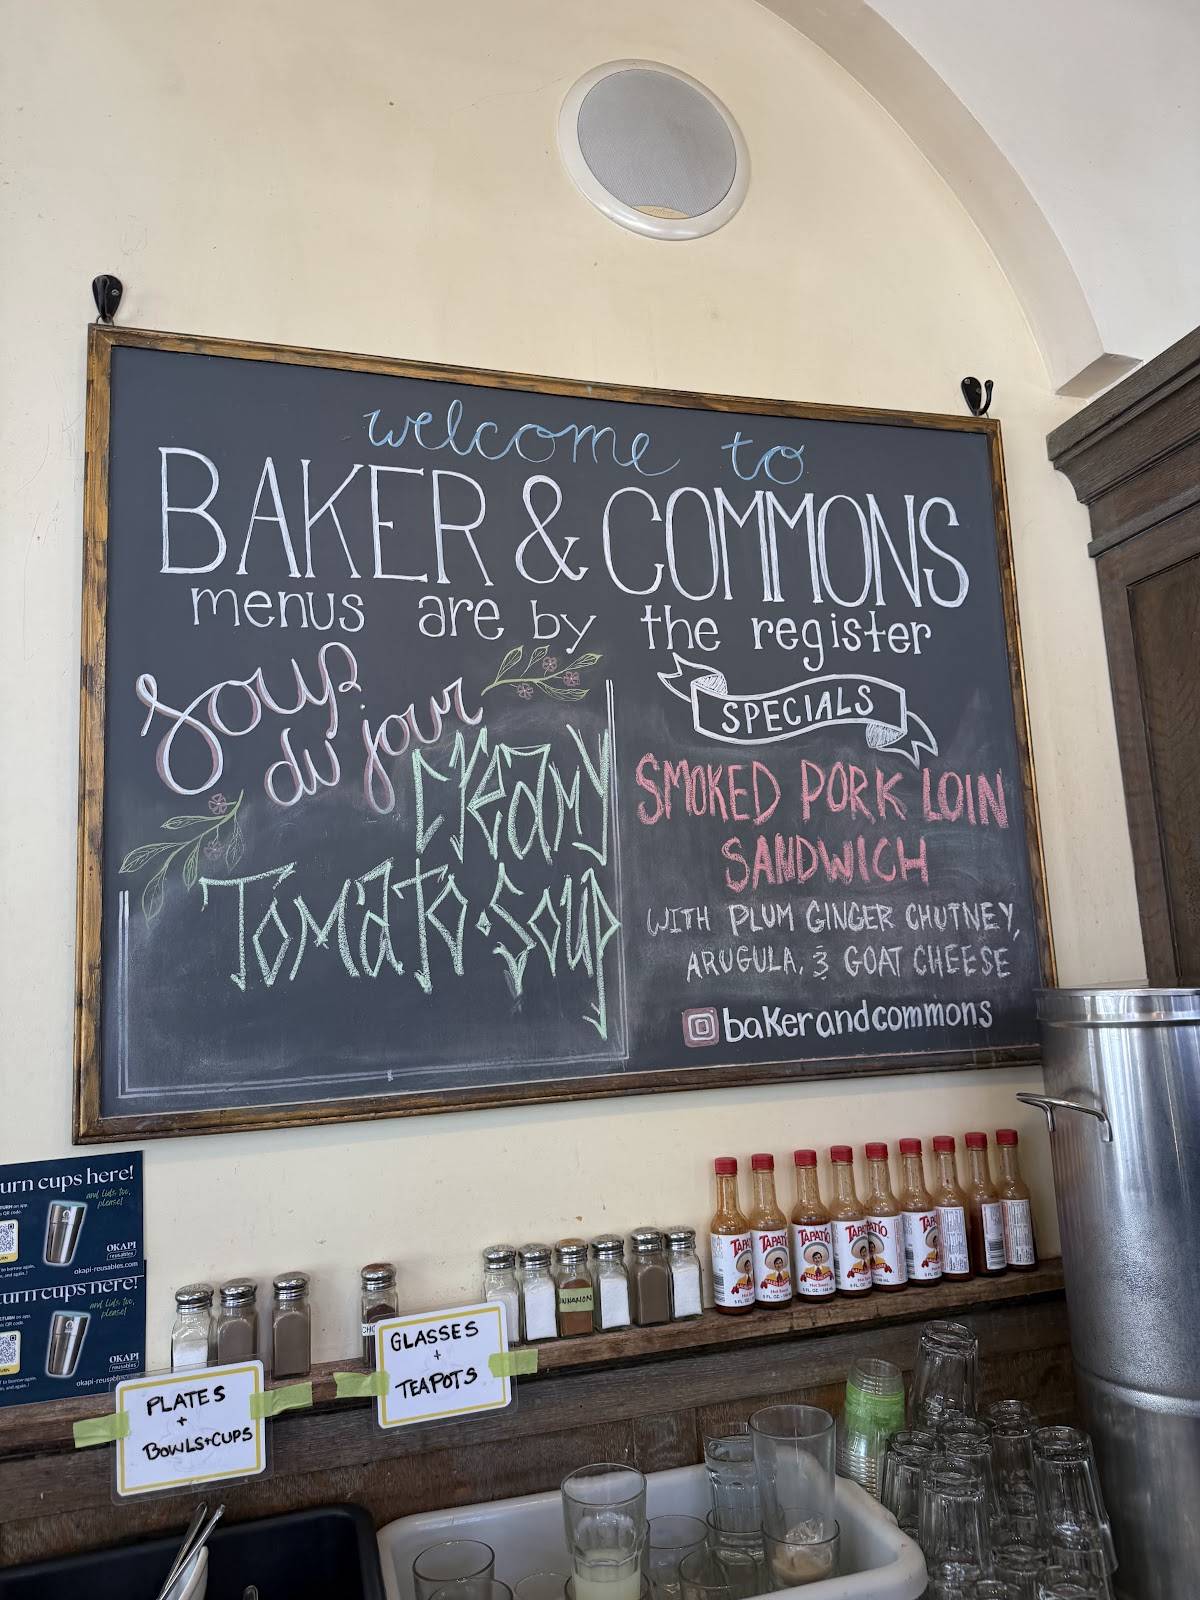 welcome to
BAKER & COMMONS
menus are by the register
soup
du jour
Creamy
Tomato Soup
SPECIALS
SMOKED PORK LOIN
SANDWICH
WITH PLUM GINGER CHUTNEY,
ARUGULA, & GOAT CHEESE
bakerandcommons
urn cups here!
and lids too,
please!
OKAPI
reusables
okapi-reusables.com
turn cups here!
and lids too,
please!
OKAPI
reusables
okapi-reusables
PLATES
+
BOWLS+CUPS
GLASSES
+
TEAPOTS
TAPATIO
TAPATIO
TAPATIO
TAPATIO